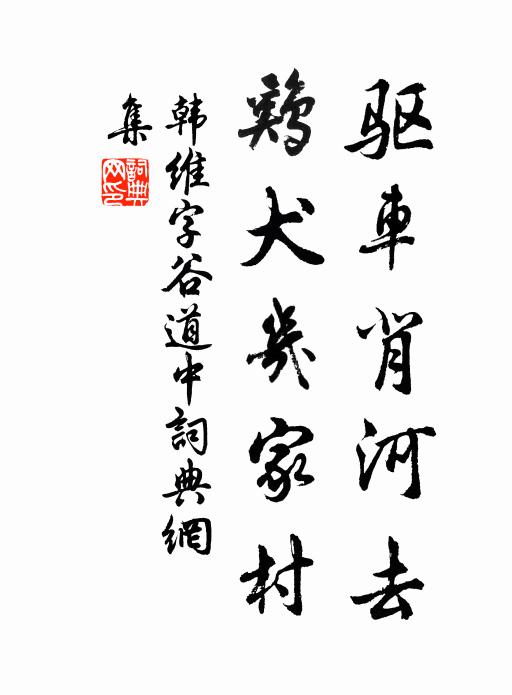 驱車背河去
鷄犬幾家村
韩維字谷道中詞典網
集
詞典網印